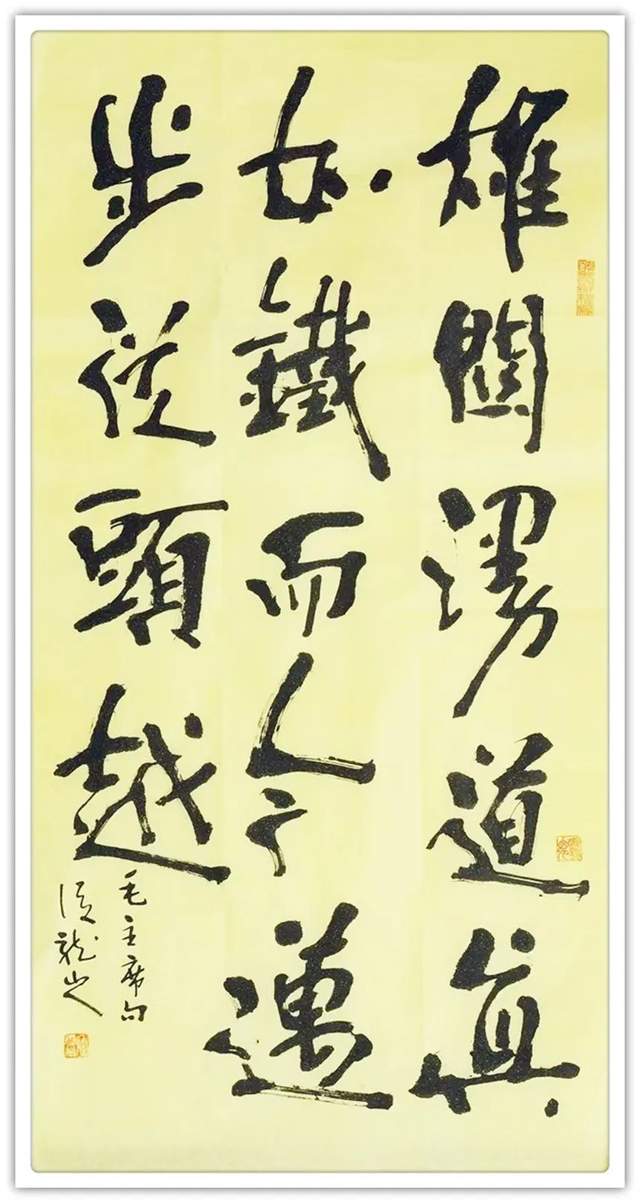 雄關漫道真
如鐵而今邁
步從頭越
毛主席句